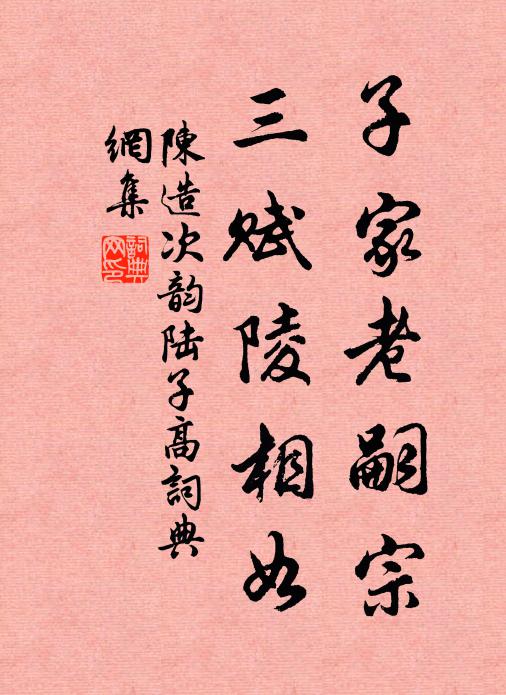 子家老嗣宗
三赋陵相如
陳造次韵陆子高詞典
網集
詞典网印